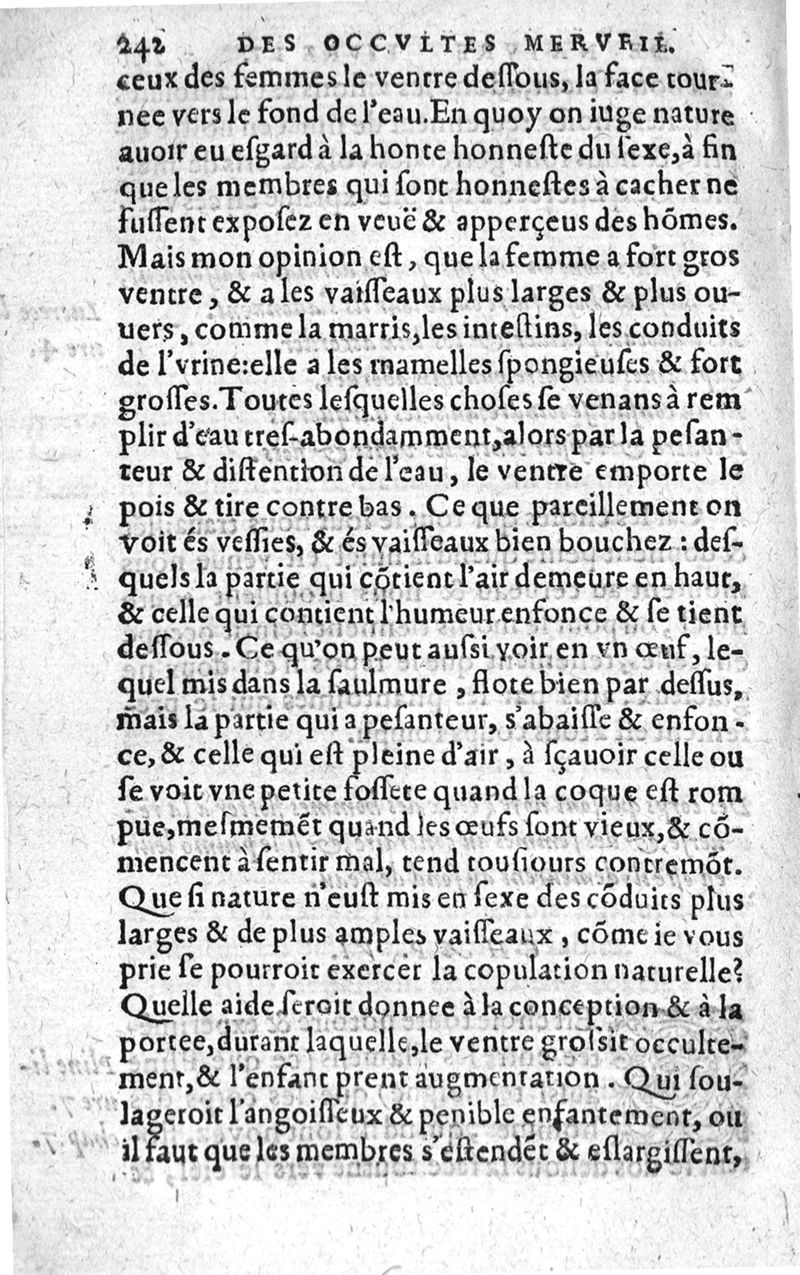 242 DES OCCVLTES MERVEIL.
ceux des femmes le ventre deſſous, la face tour-
nee vers le fond de l'eau. En quoy on iuge nature
auoir eu eſgard à la honte honneſte du ſexe, à fin
que les membres qui ſont honneſtes à cacher ne
fuſſent expoſez en veuë & apperçeus des hõmes.
Mais mon opinion eſt, que la femme a fort gros
ventre, & a les vaiſſeaux plus larges & plus ou-
uers, comme la marris, les inteſtins, les conduits
de l'vrine: elle a les mamelles ſpongieuſes & fort
groſſes. Toutes leſquelles choſes ſe venans à rem
plir d'eau treſ-abondamment, alors par la peſan-
teur & diſtention de l'eau, le ventre emporte le
pois & tire contre bas. Ce que pareillement on
voit és veſſies, & és vaiſſeaux bien bouchez: deſ-
quels la partie qui cõtient l'air demeure en haut,
& celle qui contient l'humeur enfonce & ſe tient
deſſous. Ce qu'on peut auſsi voir en vn œuf, le-
quel mis dans la ſaulmure, flote bien par deſſus,
mais la partie qui a peſanteur, s'abaiſſe & enfon-
ce, & celle qui eſt pleine d'air, à ſçauoir celle ou
ſe voit vne petite foſſete quand la coque eſt rom
pue, meſmemẽt quand les œufs ſont vieux, & cõ-
mencent à ſentir mal, tend touſiours contremõt.
Que ſi nature n'euſt mis en ſexe des cõduits plus
larges & de plus amples vaiſſeaux, cõme ie vous
prie ſe pourroit exercer la copulation naturelle?
Quelle aide ſeroit donnee à la conception & à la
portee, durant laquelle, le ventre groſsit occulte-
ment, & l'enfant prent augmentation. Qui ſou-
lageroit l'angoiſſeux & penible enfantement, ou
il faut que les membres s'eſtendẽt & eſlargiſſent,